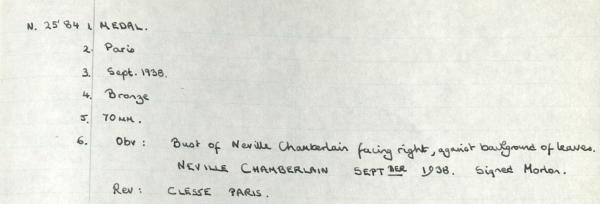 N. 25'84 1. MEDAL.
2. Paris
3. Sept. 1938.
4. Bronze
5. 70 MM.
6. Obv: Bust of Neville Chamberlain facing right, against background of leaves.
NEVILLE CHAMBERLAIN SEPTBER 1938. Signed Morlon.
Rev: CLESSE PARIS.